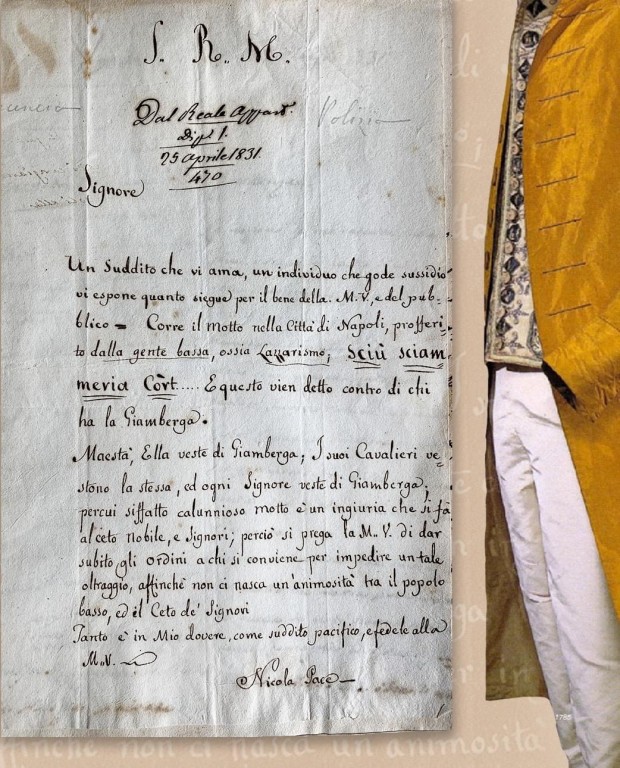 S. R. M.
Dal Reale Appart.
25 Aprile 1831.
470
Polizia
Signore
Un Suddito che vi ama, un individuo che gode sussidio
vi espone quanto siegue per il bene della. M. V. e del pub-
blico = Corre il motto nella Città di Napoli, profferi-
to dalla gente bassa, ossia Lazzarismo; Sciù sciam-
meria Còrt..... E questo vien detto contro di chi
ha la Giamberga.
Maestà, Ella veste di Giamberga; I suoi Cavalieri ve-
stono la stessa, ed ogni Signore veste di Giamberga.
percui siffatto calunnioso motto è un ingiuria che si fà
al ceto nobile, e Signori; perciò si prega la M. V. di dar
subito gli ordini a chi si conviene per impedire un tale
oltraggio, affinchè non ci nasca un'animosità tra il popolo
basso, ed il Ceto de' Signori
Tanto è in Mio dovere, come suddito pacifico, e fedele alla
M. V.
Nicola Pace
affinchè non ci nasca un'animosità